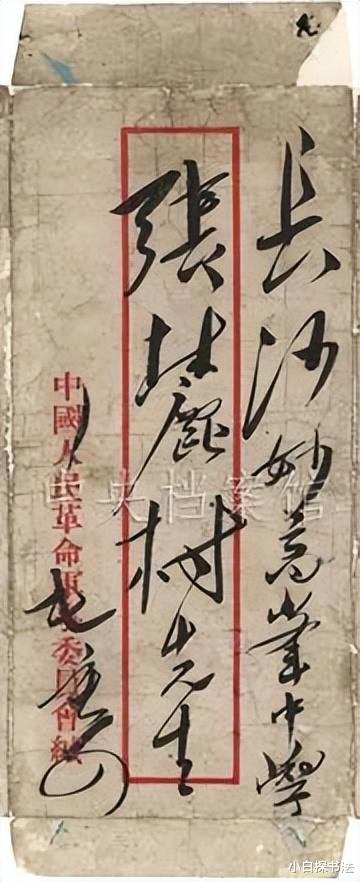 長沙妙高峯中學
張麓村先生
中國人民革命軍事委員會緘
中央档案馆
小白探书法